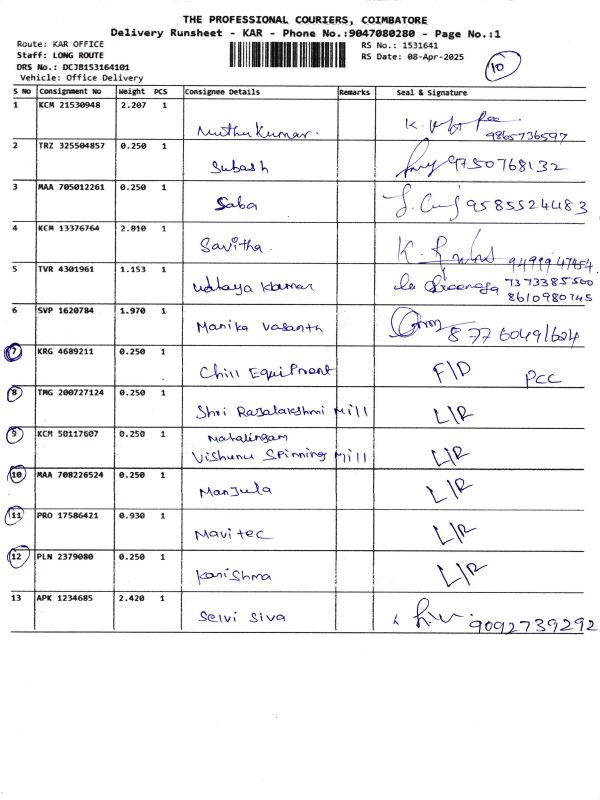 THE PROFESSIONAL COURIERS, COIMBATORE
Delivery Runsheet - KAR - Phone No.:9047080280 - Page No.:1
Route: KAR OFFICE RS No.: 1531641
Staff: LONG ROUTE RS Date: 08-Apr-2025 10
DRS No.: DCJB153164101
Vehicle: Office Delivery
S No Consignment No Weight PCS Consignee Details Remarks Seal & Signature
1 KCM 21530948 2.207 1 Muthu Kumar. K. 9865736597
2 TRZ 325504857 0.250 1 Subash 9750768132
3 MAA 705012261 0.250 1 Saba 9585524483
4 KCM 13376764 2.810 1 Savitha. K.
5 TVR 4301961 1.153 1 Udaya Kumar 7373385500
8610980745
6 SVP 1620784 1.970 1 Manika Vasanth
7 KRG 4689211 0.250 1 Chill Equipment F/D PCC
8 TMG 200727124 0.250 1 Shri Rajalakshmi Mill L/R
9 KCM 50117607 0.250 1 Mahalingam
Vishunu Spinning Mill L/R
10 MAA 708226524 0.250 1 Manjula L/R
11 PRO 17586421 0.930 1 Mavitec L/R
12 PLN 2379080 0.250 1 Karishma L/R
13 APK 1234685 2.420 1 Selvi Siva 9092739292